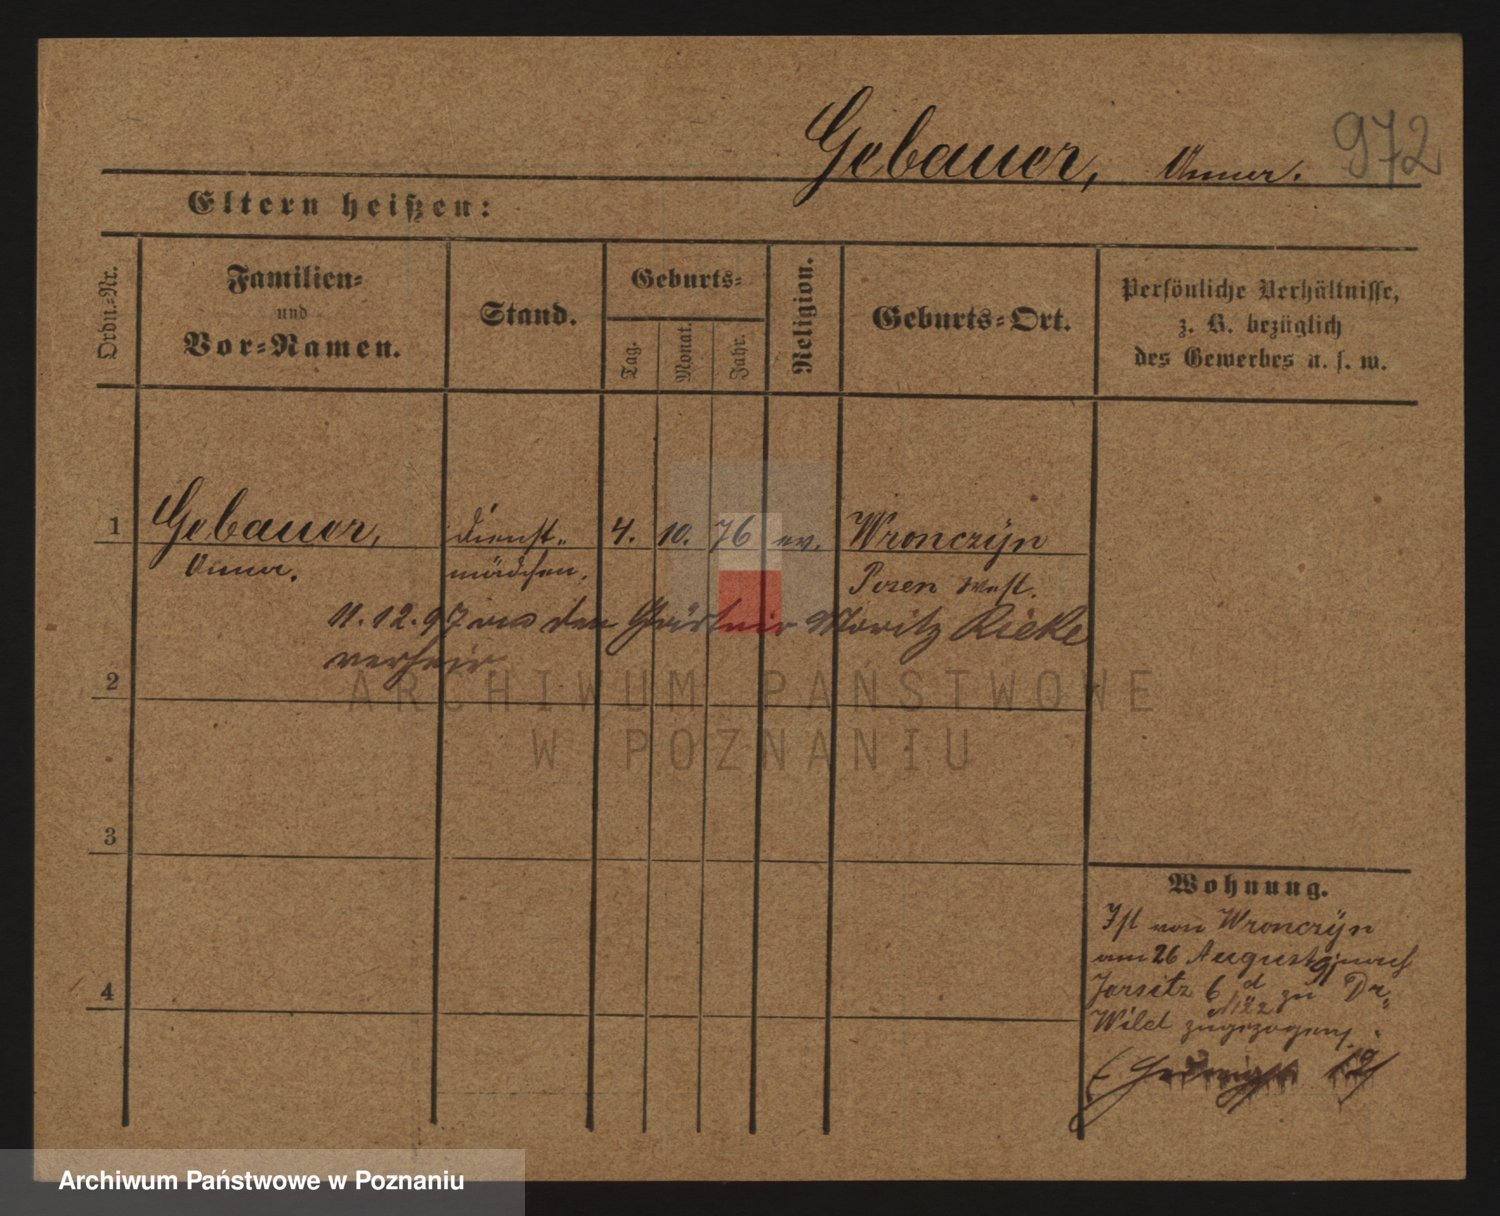 972
Gebauer, Anna.
Eltern heißen:
Ordn.-Nr.
Familien-
und
Vor-Namen.
Stand.
Geburts-
Tag.
Monat.
Jahr.
Religion.
Geburts-Ort.
Persönliche Verhältnisse,
z. B. bezüglich
des Gewerbes u. s. w.
1 Gebauer, Dienst- 4. 10. 76 ev. Wronczyn
Anna. mädchen. Posen West.
11.12.97 an den Gärtner Moritz Rieke
verheir
2
3
4
Wohnung.
Ist von Wronczyn
am 26 August 91 nach
Jersitz 6 d zu Dr.
Wild zugezogen.
ARCHIWUM PAŃSTWOWE
W POZNANIU
Archiwum Państwowe w Poznaniu